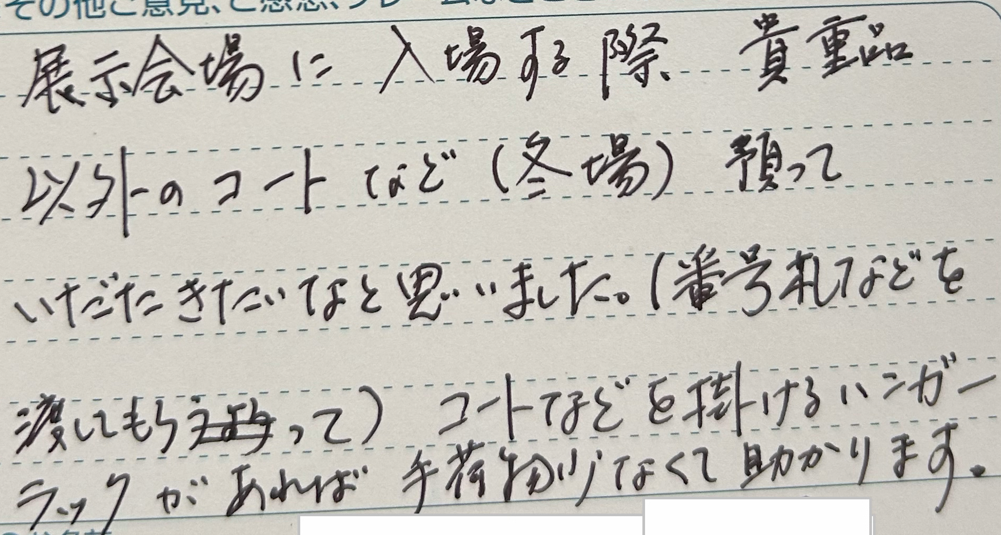 その他ご意見、ご感想、
展示会場に入場する際 貴重品
以外のコートなど(冬場)預って
いただたきたいなと思いました。(番号札などを
渡してもらって) コートなどを掛けるハンガー
ラックがあれば手荷物少なくて助かります。